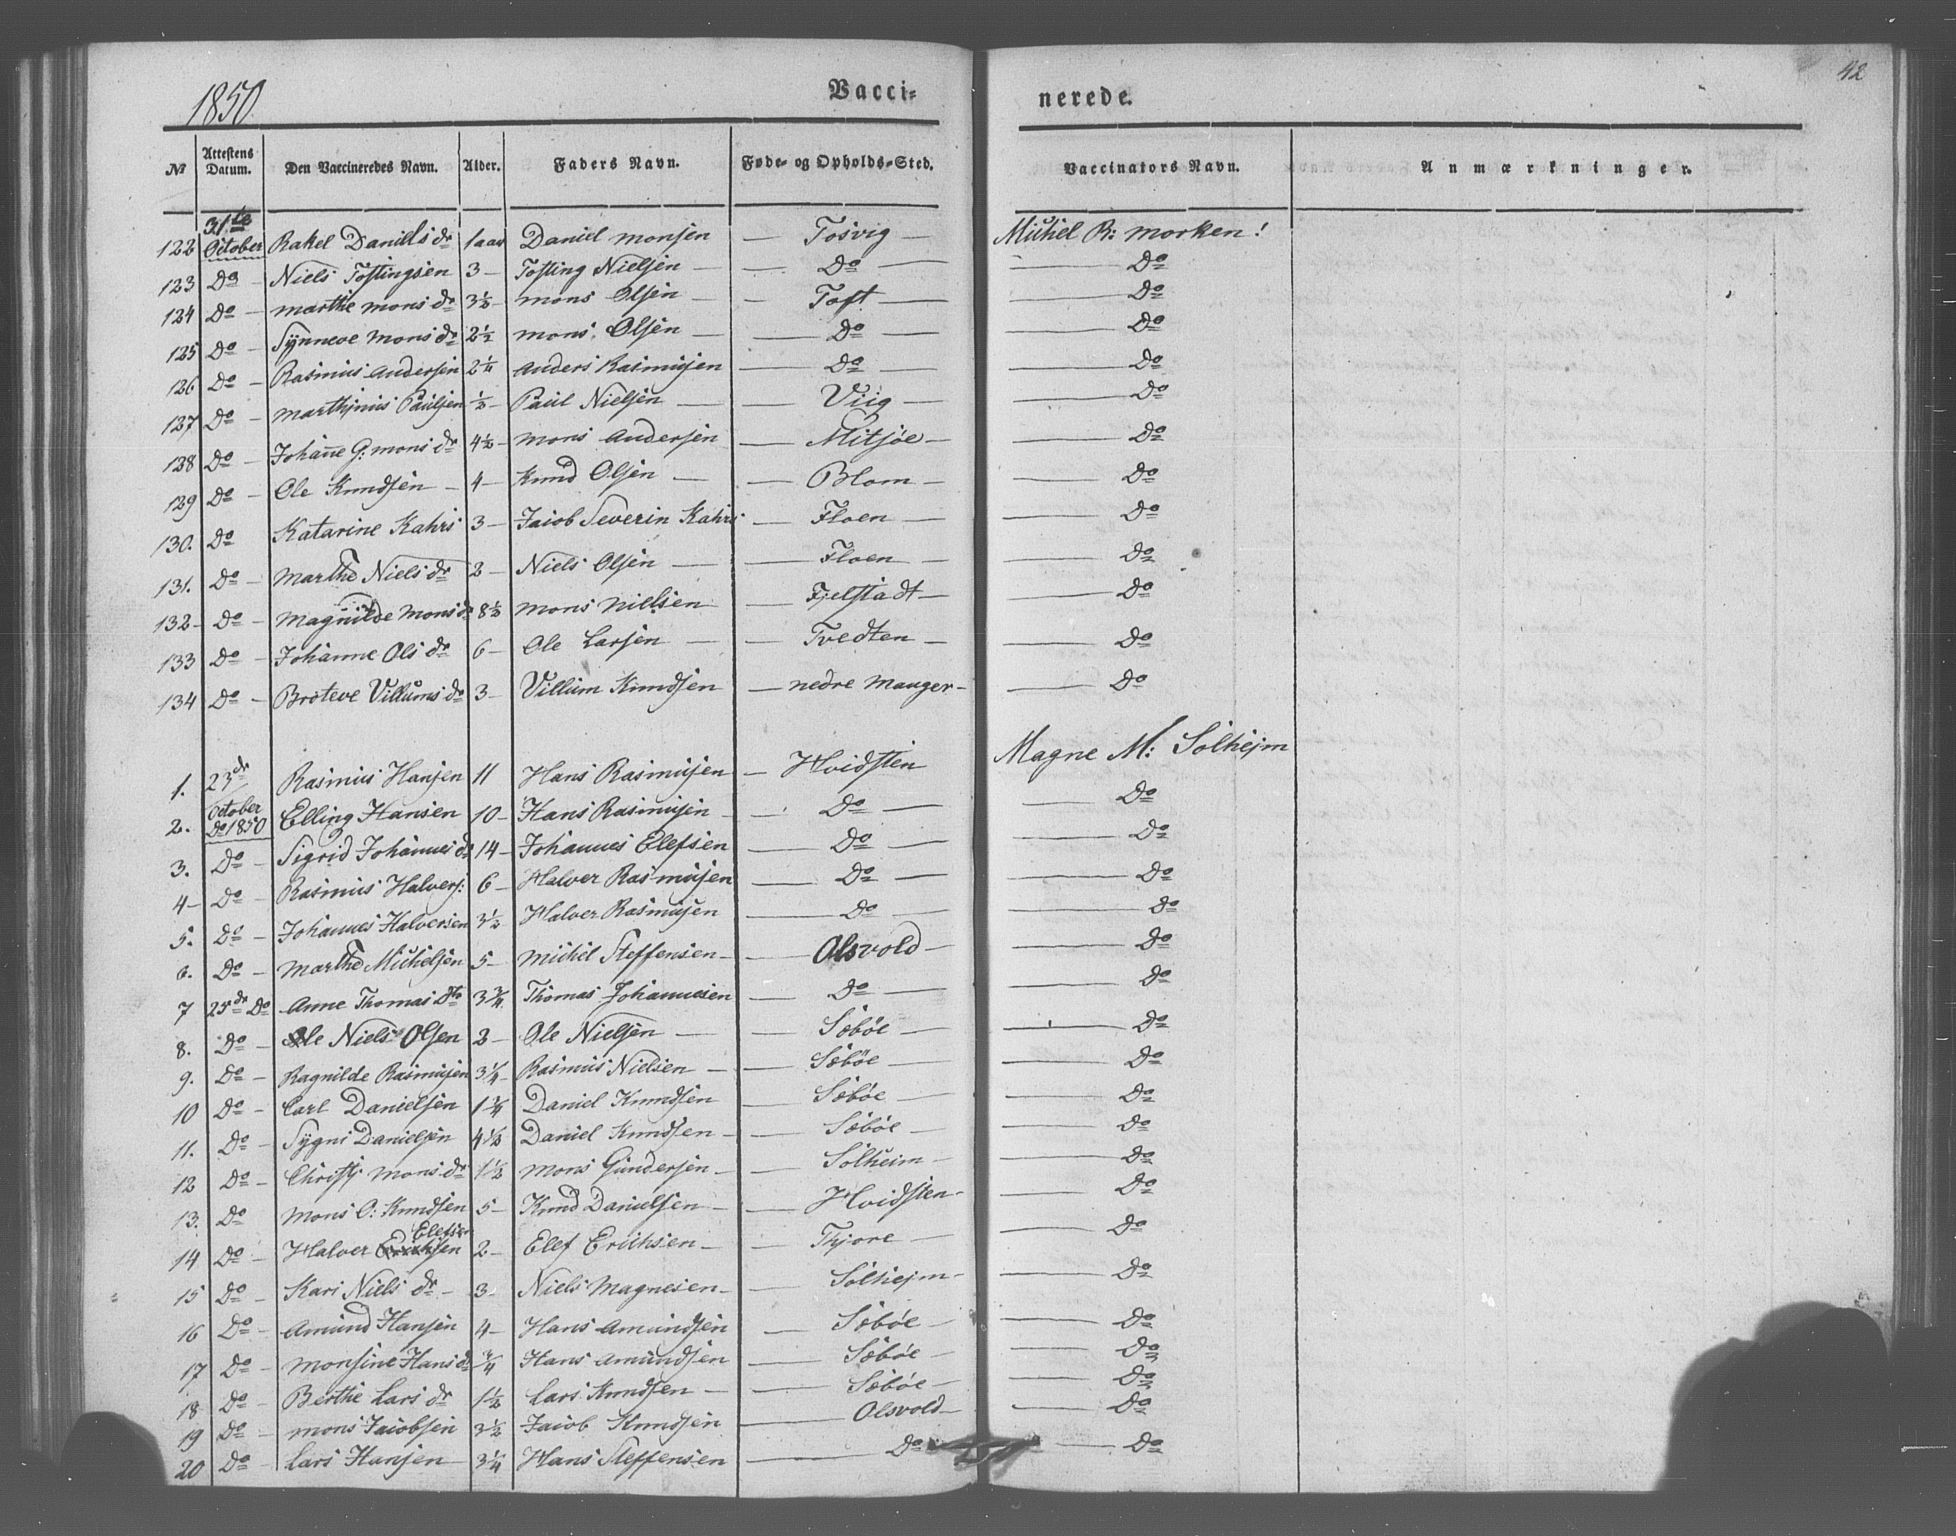 1850
Vacci-
nerede.
42
No | Attestens Datum. | Den Vaccineredes Navn. | Alder. | Faders Navn. | Føde- og Opholds-Sted. | Vaccinators Navn. | Anmærkninger.
122 | 31te October | Rakel Daniels dr | 1 aar | Daniel Monsen | Tosvig | Michel R: Morken!
123 | Do | Niels Tostingsen | 3 | Tosting Nielsen | Do | Do
124 | Do | Marthe Mons dr | 3½ | Mons Olsen | Toft | Do
125 | Do | Synneve Mons dr | 2½ | Mons Olsen | Do | Do
126 | Do | Rasmus Andersen | 2¼ | Anders Rasmusen | Do | Do
127 | Do | Marthinus Paulsen | ½ | Paul Nielsen | Viig | Do
128 | Do | Johanne G: Mons dr | 4½ | Mons Andersen | Mitsøe | Do
129 | Do | Ole Knudsen | 4 | Knud Olsen | Blom | Do
130. | Do | Katarine Kahrs | 3 | Jacob Severin Kahrs | Floen | Do
131. | Do | Marthe Niels dr | 2 | Niels Olsen | Floen | Do
132 | Do | Magnilde Mons dr | 8½ | Mons Nielsen | Fjelstadt | Do
133 | Do | Johanne Ols dr | 6 | Ole Larsen | Tvedten | Do
134 | Do | Broteve Villums dr | 3 | Villum Knudsen | nedre Manger | Do
1. | 23de October 1850 | Rasmus Hansen | 11 | Hans Rasmusen | Hvidsten | Magne M: Solhejm
2. | Do | Elling Hansen | 10 | Hans Rasmusen | Do | Do
3. | Do | Sigrid Johannes dr | 14 | Johannes Elefsen | Do | Do
4 | Do | Rasmus Halvers: | 6 | Halver Rasmusen | Do | Do
5. | Do | Johannes Halversen | 3½ | Halver Rasmusen | Do | Do
6. | Do | Marthe Michelsen | 5 | Michel Steffensen | Olsvold | Do
7 | 25de Do | Anne Thomas dtr | 3¾ | Thomas Johannesen | Do | Do
8. | Do | Ole Niels Olsen | 2 | Ole Nielsen | Sæbøe | Do
9. | Do | Ragnilde Rasmusen | 3¼ | Rasmus Nielsen | Sæbøe | Do
10 | Do | Carl Danielsen | 1¾ | Daniel Knudsen | Sæbøe | Do
11. | Do | Sygni Danielsen | 4½ | Daniel Knudsen | Sæbøe | Do
12 | Do | Christj Mons dr | 1½ | Mons Gundersen | Solheim | Do
13. | Do | Mons O: Knudsen | 5 | Knud Danielsen | Hvidsten | Do
14 | Do | Halver Elefsen | 2 | Elef Erichsen | Thjore | Do
15 | Do | Kari Niels dr | 3 | Niels Magnesen | Solhejm | Do
16 | Do | Amund Hansen | 4 | Hans Amundsen | Sæbøe | Do
17 | Do | Monsine Hans dr | ¾ | Hans Amundsen | Sæbøe | Do
18 | Do | Berthe Lars dr | 1½ | Lars Knudsen | Sæbøe | Do
19 | Do | Mons Jacobsen | 3½ | Jacob Knudsen | Olsvold | Do
20 | Do | Lars Hansen | 3¼ | Hans Steffensen | Do | Do